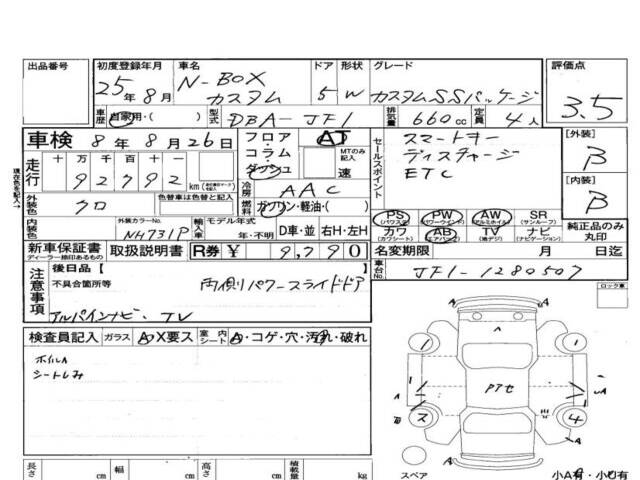 出品番号 初度登録年月 車名 ドア 形状 グレード 評価点
25年8月 N-BOX カスタム 5 W カスタムSSパッケージ 3.5
車歴 自家用・( ) 型式 DBA-JF1 排気量 660cc 定員 4人
車検 8年8月26日 フロア・コラム・ダッシュ AT MTのみ記入 速
セールスポイント スマートキー
ディスチャージ
ETC
[外装] B
[内装] B
現在色を記入→
走行 十万千百十一 92792 km
冷房 AAC
外装色 クロ 色替車は色替と記入 燃料 ガソリン・軽油・( )
PS (パワステ) PW (パワーウインド) AW (アルミホイル) SR (サンルーフ)
カワ (カワシート) AB (エアバッグ) TV (地デジ) ナビ (ナビゲーション)
純正品のみ丸印
内装色 外装カラーNo. NH731P 輸入車 モデル年式 年・不明 D車・並 右H・左H
新車保証書 ディーラー捺印あるもの 取扱説明書 R券 ¥ 9,790
名変期限 月 日迄
車台No. JF1-1280507
注意事項 後日品[ ]
不具合箇所等 両側パワースライドドア
アルパインナビ・TV
ロック車
検査員記入 ガラス A X要ス 室内シート A・コゲ・穴・汚れ・破れ
ホイルA
シートしみ
Pアセ
1 1 ス 4
A A A A A
スペア 小A有・小U有
長さ cm 幅 cm 高さ cm 積載量 kg